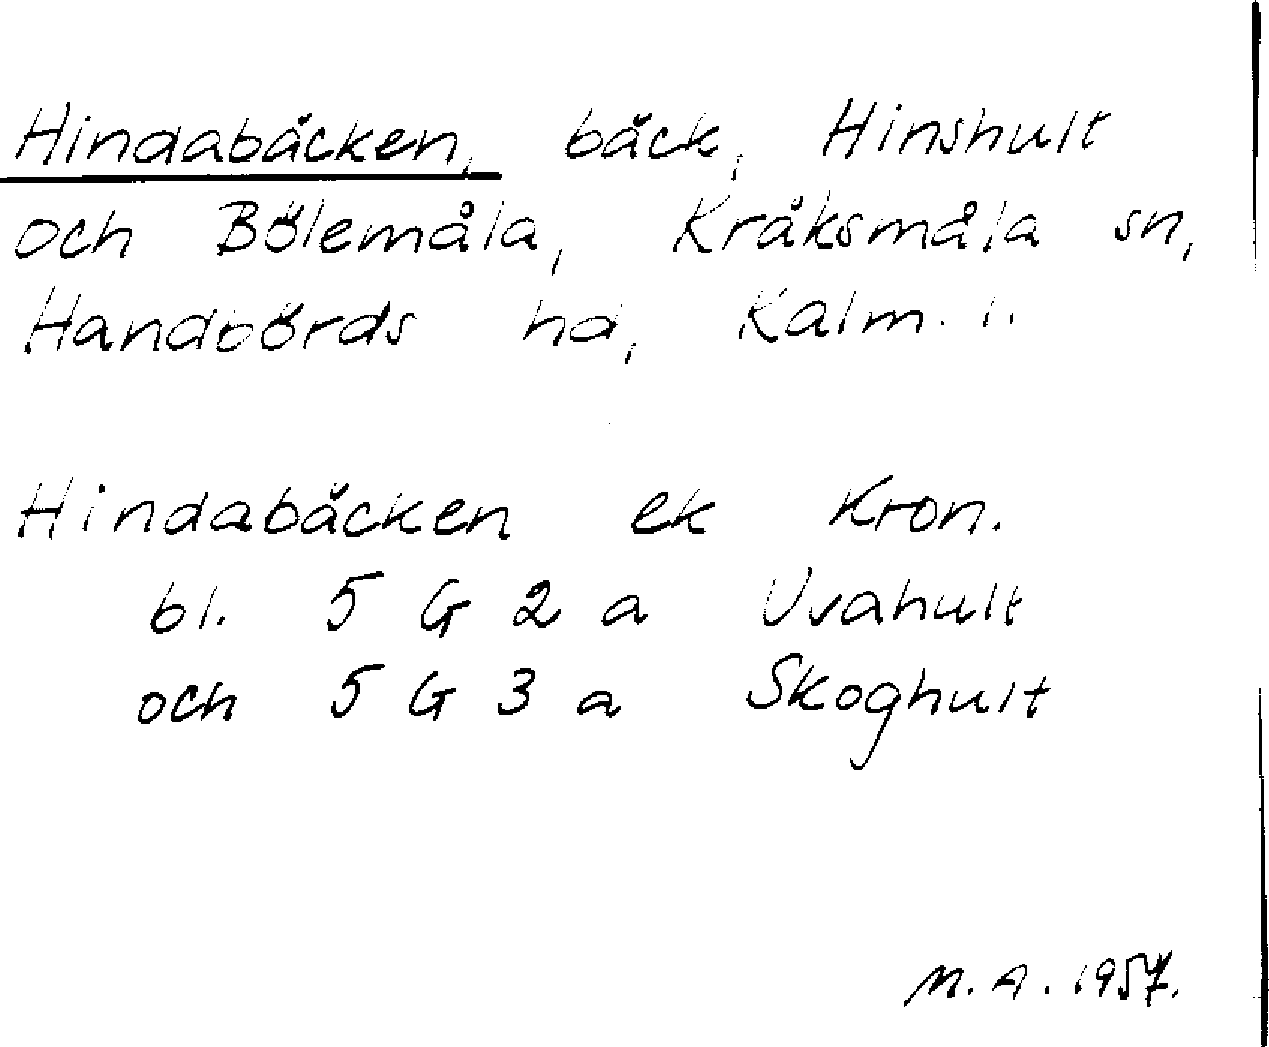 Hindabäcken, bäck, Hinshult
och Bölemåla, Kråksmåla sn,
Handbörds hd, Kalm. l.
Hindabäcken ek Kron.
bl. 5 G 2 a Uvahult
och 5 G 3 a Skoghult
M. A. 1957.